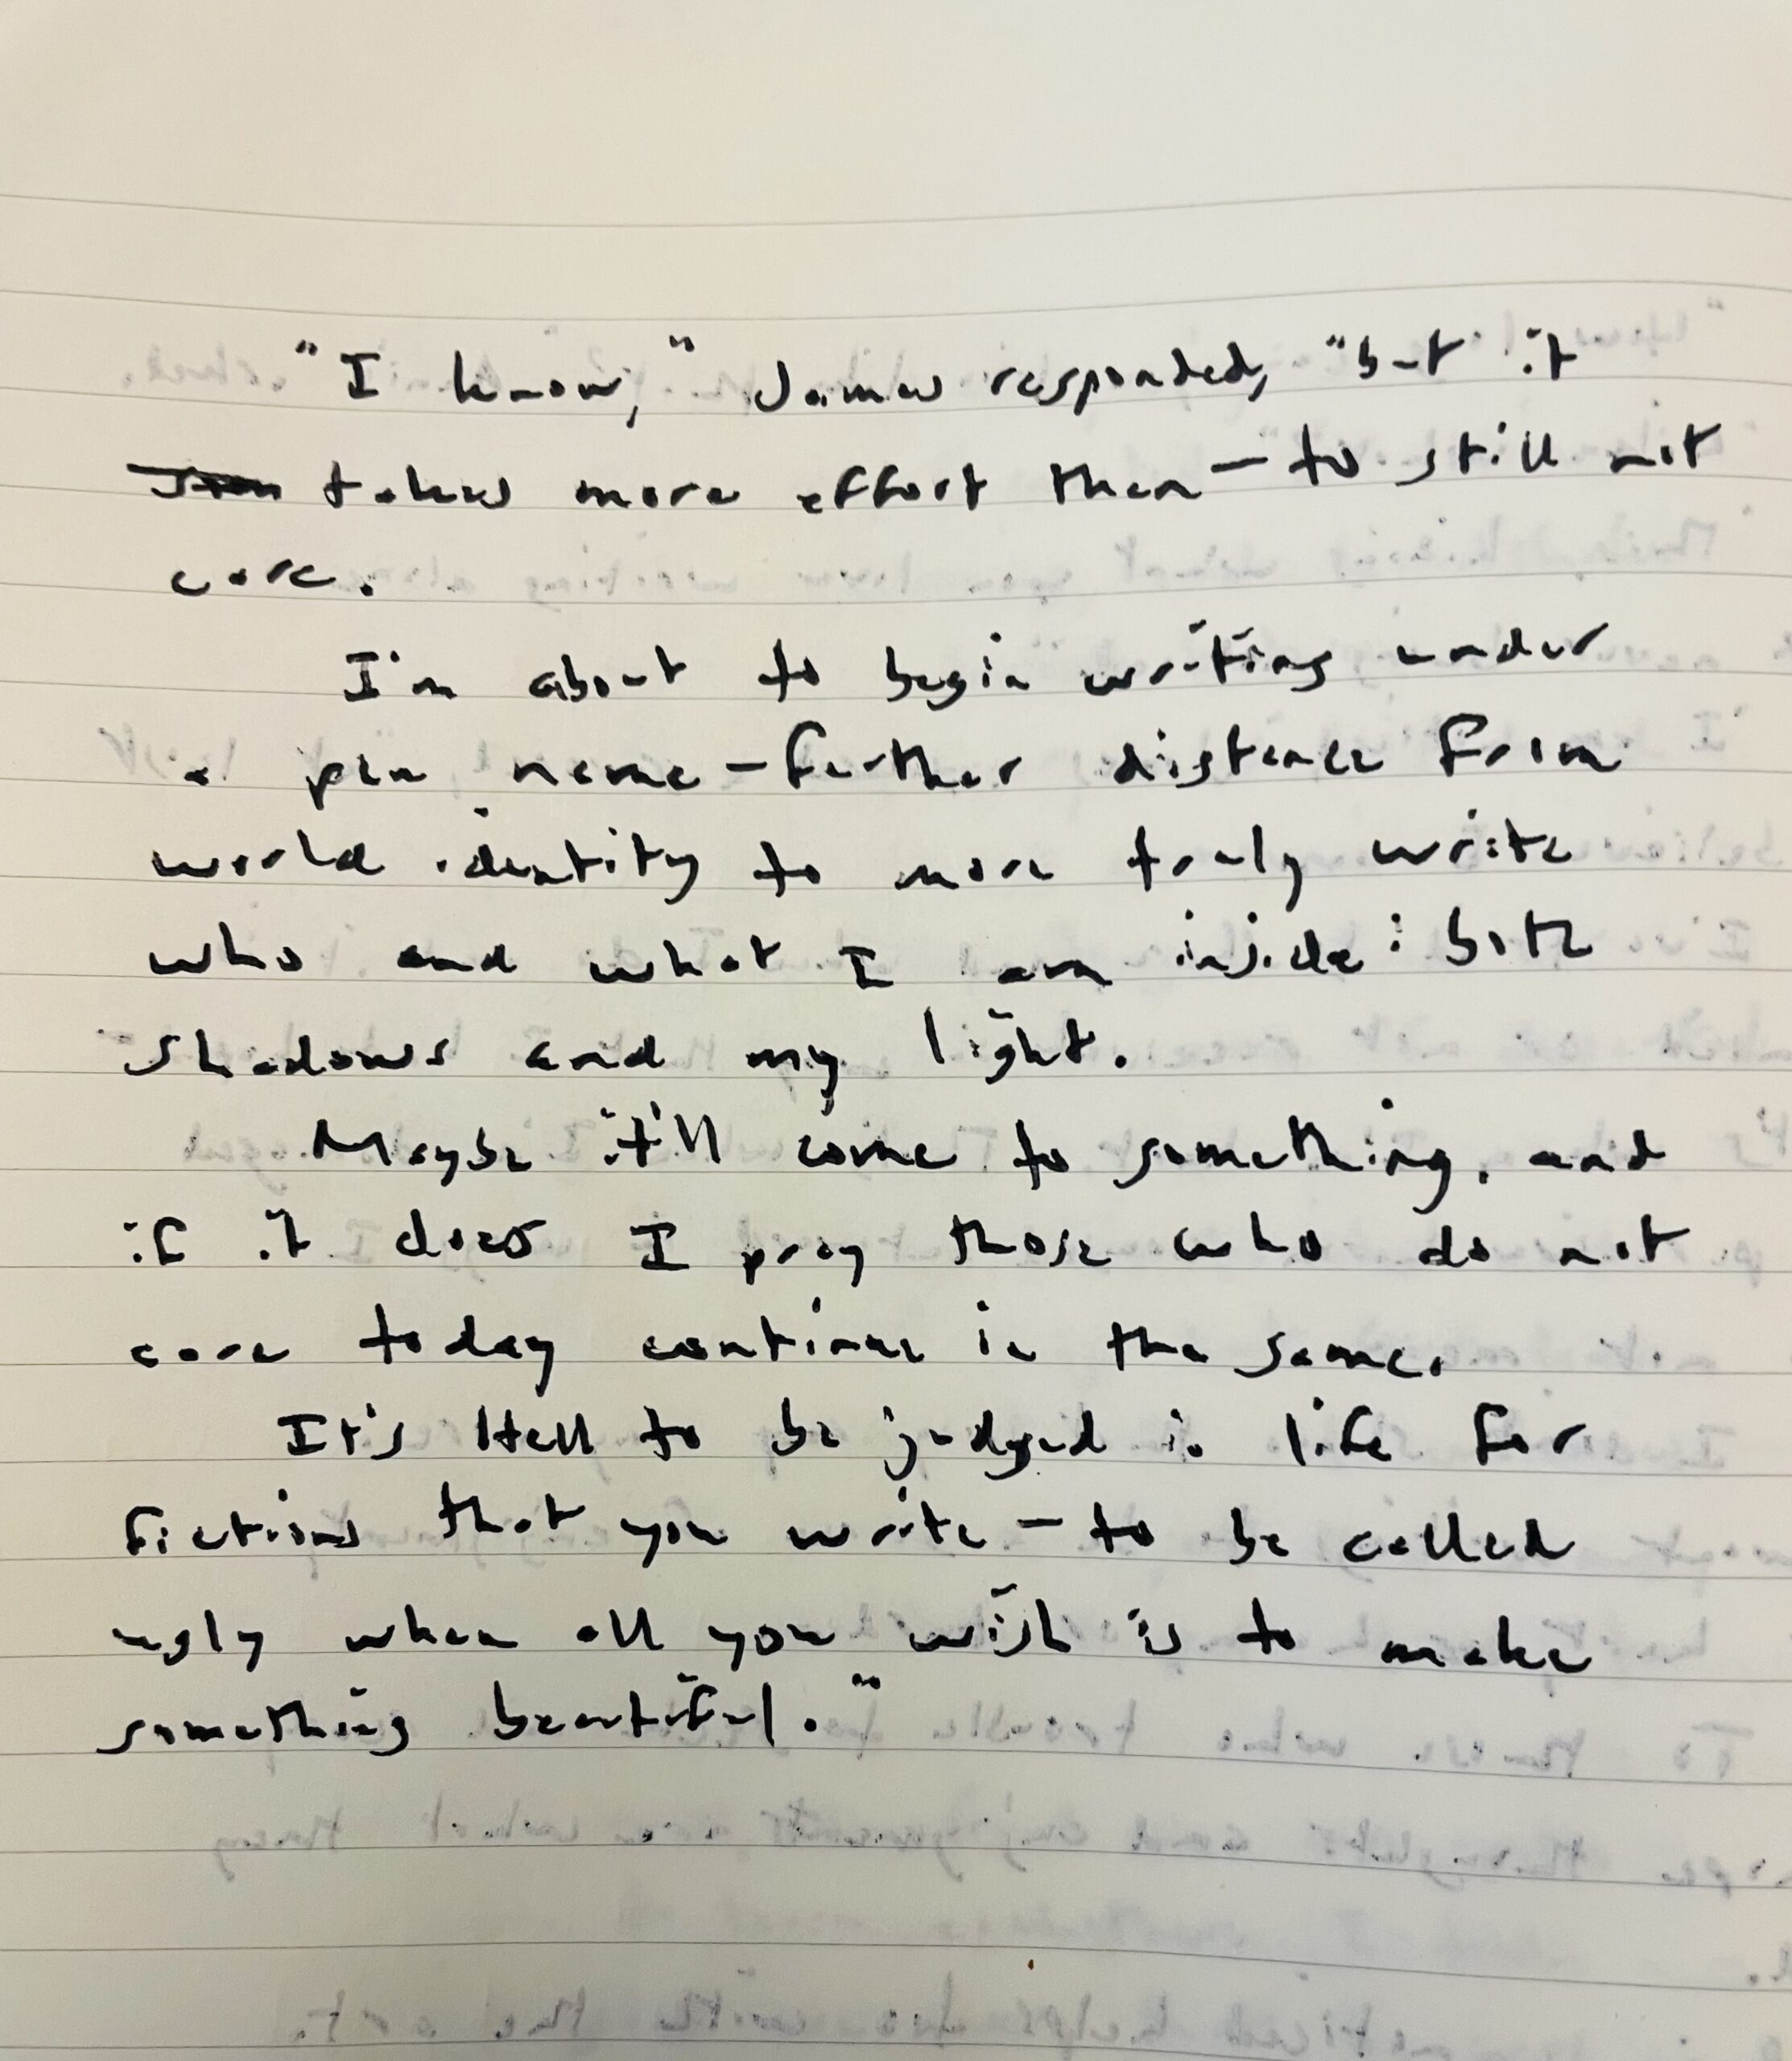 "I know," James responded, "but it
takes more effort then — to still not
care.
I'm about to begin writing under
a pen name — further distance from
world identity to more truly write
who and what I am inside: both
shadows and my light.
Maybe it'll come to something, and
if it does I pray those who do not
care today continue in the same.
It's Hell to be judged in life for
fictions that you write — to be called
ugly when all you wish is to make
something beautiful."